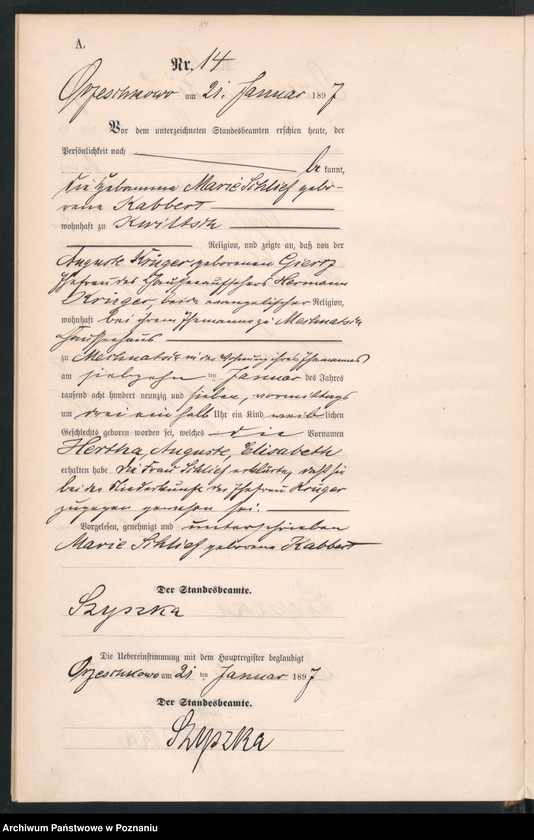 14
A.
Nr. 14
Orzeschkowo am 21. Januar 1897
Vor dem unterzeichneten Standesbeamten erschien heute, der
Persönlichkeit nach
be kannt,
die Hebamme Marie Schlief gebo-
rene Kabbert
wohnhaft zu Kwiltsch
Religion, und zeigte an, daß von der
Auguste Krüger, geborenen Giersz
Ehefrau des Chausseeaufsehers Hermann
Krüger, beide evangelischer Religion,
wohnhaft bei ihrem Ehemanne zu Merlinatsch
Chausseehaus
zu Merlinatsch in der Wohnung ihres Ehemannes
am siebzehn ten Januar des Jahres
tausend acht hundert neunzig und sieben, vormittags
um drei ein halb Uhr ein Kind weib lichen
Geschlechts geboren worden sei, welches die Vornamen
Hertha, Auguste, Elisabeth
erhalten habe. Die Frau Schlief erklärte, daß sie
bei der Niederkunft der Ehefrau Krüger
zugegen gewesen sei.
Vorgelesen, genehmigt und unterschrieben
Marie Schlief geborene Kabbert
Der Standesbeamte.
Szyszka
Die Uebereinstimmung mit dem Hauptregister beglaubigt
Orzeschkowo am 21 ten Januar 1897
Der Standesbeamte.
Szyszka
Archiwum Państwowe w Poznaniu